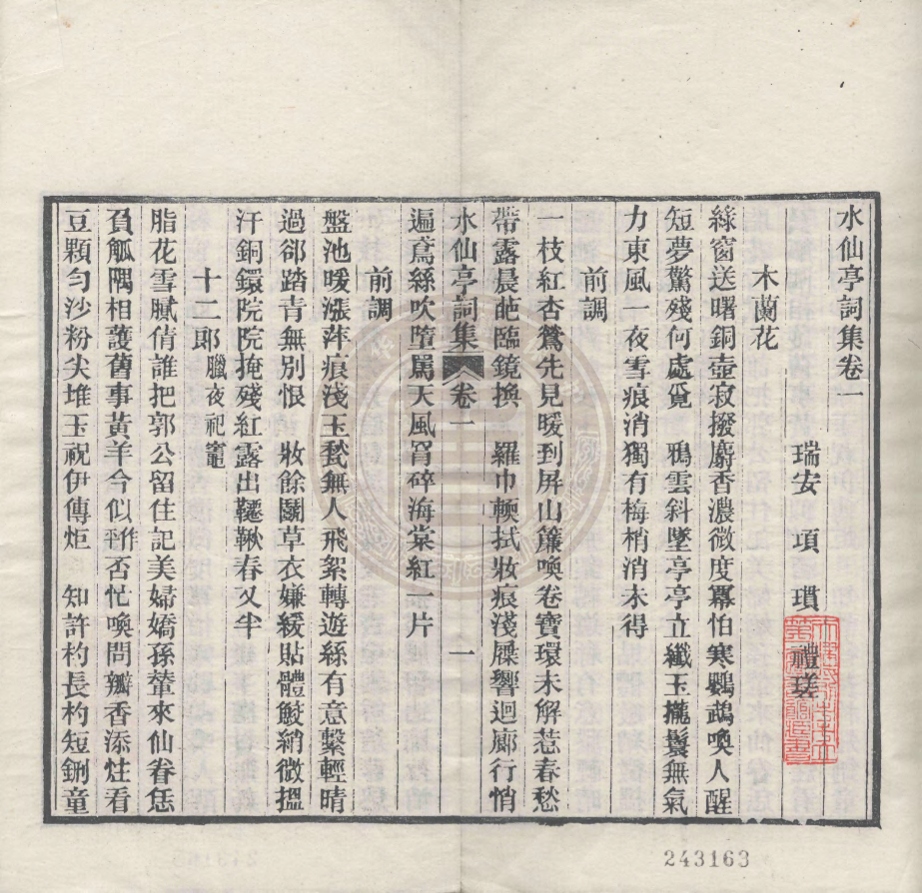 水仙亭詞集卷一
瑞安　項　瓆　禮瑳
木蘭花
絲窗送曙銅壺寂撥麝香濃微度冪怕寒鸚鵡喚人醒
短夢驚殘何處覓　鴉雲斜墜亭亭立纖玉攏鬟無氣
力東風一夜雪痕消獨有梅梢消未得
前調
一枝紅杏鶯先見暖到屏山簾喚卷寶環未解惹春愁
帶露晨葩臨鏡換　羅巾輭拭妝痕淺屧響迴廊行悄
水仙亭詞集　卷一　一
遍鳶絲吹墮罵天風罥碎海棠紅一片
前調
盤池暖漲萍痕淺玉甃無人飛絮轉遊絲有意繫輕晴
過郤踏青無別恨　妝餘鬭草衣嫌緩貼體鮫綃微搵
汗銅鐶院院掩殘紅露出鞦韆春又半
十二郞臘夜祀竈
脂花雪膩倩誰把郭公留住記美婦嬌孫輦來仙眷恁
負觚隅相護舊事黃羊今似胙否忙喚問瓣香添炷看
豆顆匀沙粉尖堆玉祝伊傳炬　知許杓長杓短鉶童
243163